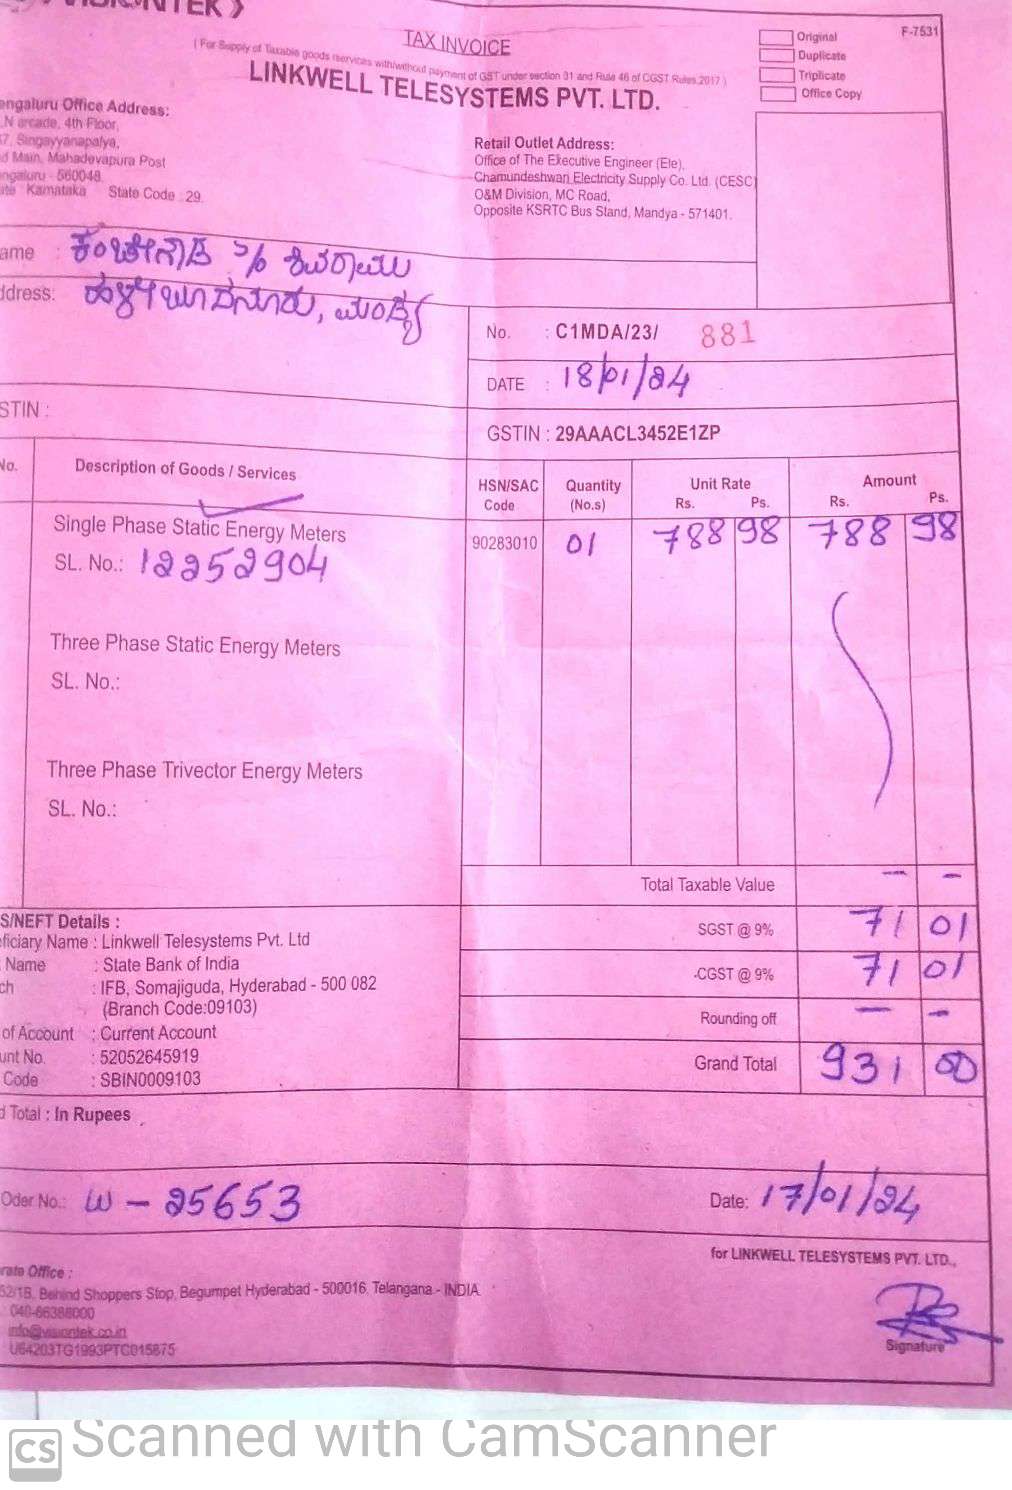 TAX INVOICE
( For Supply of Taxable goods /services with/without payment of GST under section 31 and Rule 46 of CGST Rules,2017 )
LINKWELL TELESYSTEMS PVT. LTD.
Original
Duplicate
Triplicate
Office Copy
F-7531
engaluru Office Address:
N arcade, 4th Floor,
7, Singayyanapalya,
d Main, Mahadevapura Post
ngaluru - 560048.
ate Karnataka State Code : 29.
Retail Outlet Address:
Office of The Executive Engineer (Ele),
Chamundeshwari Electricity Supply Co. Ltd. (CESC)
O&M Division, MC Road,
Opposite KSRTC Bus Stand, Mandya - 571401.
ame : ಕಂಚೀಗೌಡ S/o ಶಿವರಾಮು
ddress: ಹಳೇಬೂದನೂರು, ಮಂಡ್ಯ
No. : C1MDA/23/ 881
DATE : 18/01/24
STIN :
GSTIN : 29AAACL3452E1ZP
No. Description of Goods / Services HSN/SAC Code Quantity (No.s) Unit Rate Rs. Ps. Amount Rs. Ps.
Single Phase Static Energy Meters 90283010 01 788 98 788 98
SL. No.: 12252904
Three Phase Static Energy Meters
SL. No.:
Three Phase Trivector Energy Meters
SL. No.:
Total Taxable Value - -
SGST @ 9% 71 01
CGST @ 9% 71 01
Rounding off - -
Grand Total 931 00
S/NEFT Details :
ficiary Name : Linkwell Telesystems Pvt. Ltd
Name : State Bank of India
ch : IFB, Somajiguda, Hyderabad - 500 082
(Branch Code:09103)
of Account : Current Account
unt No. : 52052645919
Code : SBIN0009103
d Total : In Rupees
Oder No.: W - 25653 Date: 17/01/24
for LINKWELL TELESYSTEMS PVT. LTD.,
rate Office :
52/1B, Behind Shoppers Stop, Begumpet Hyderabad - 500016. Telangana - INDIA.
040-66388000
info@visiontek.co.in
U64203TG1993PTC015875
Signature
CS Scanned with CamScanner